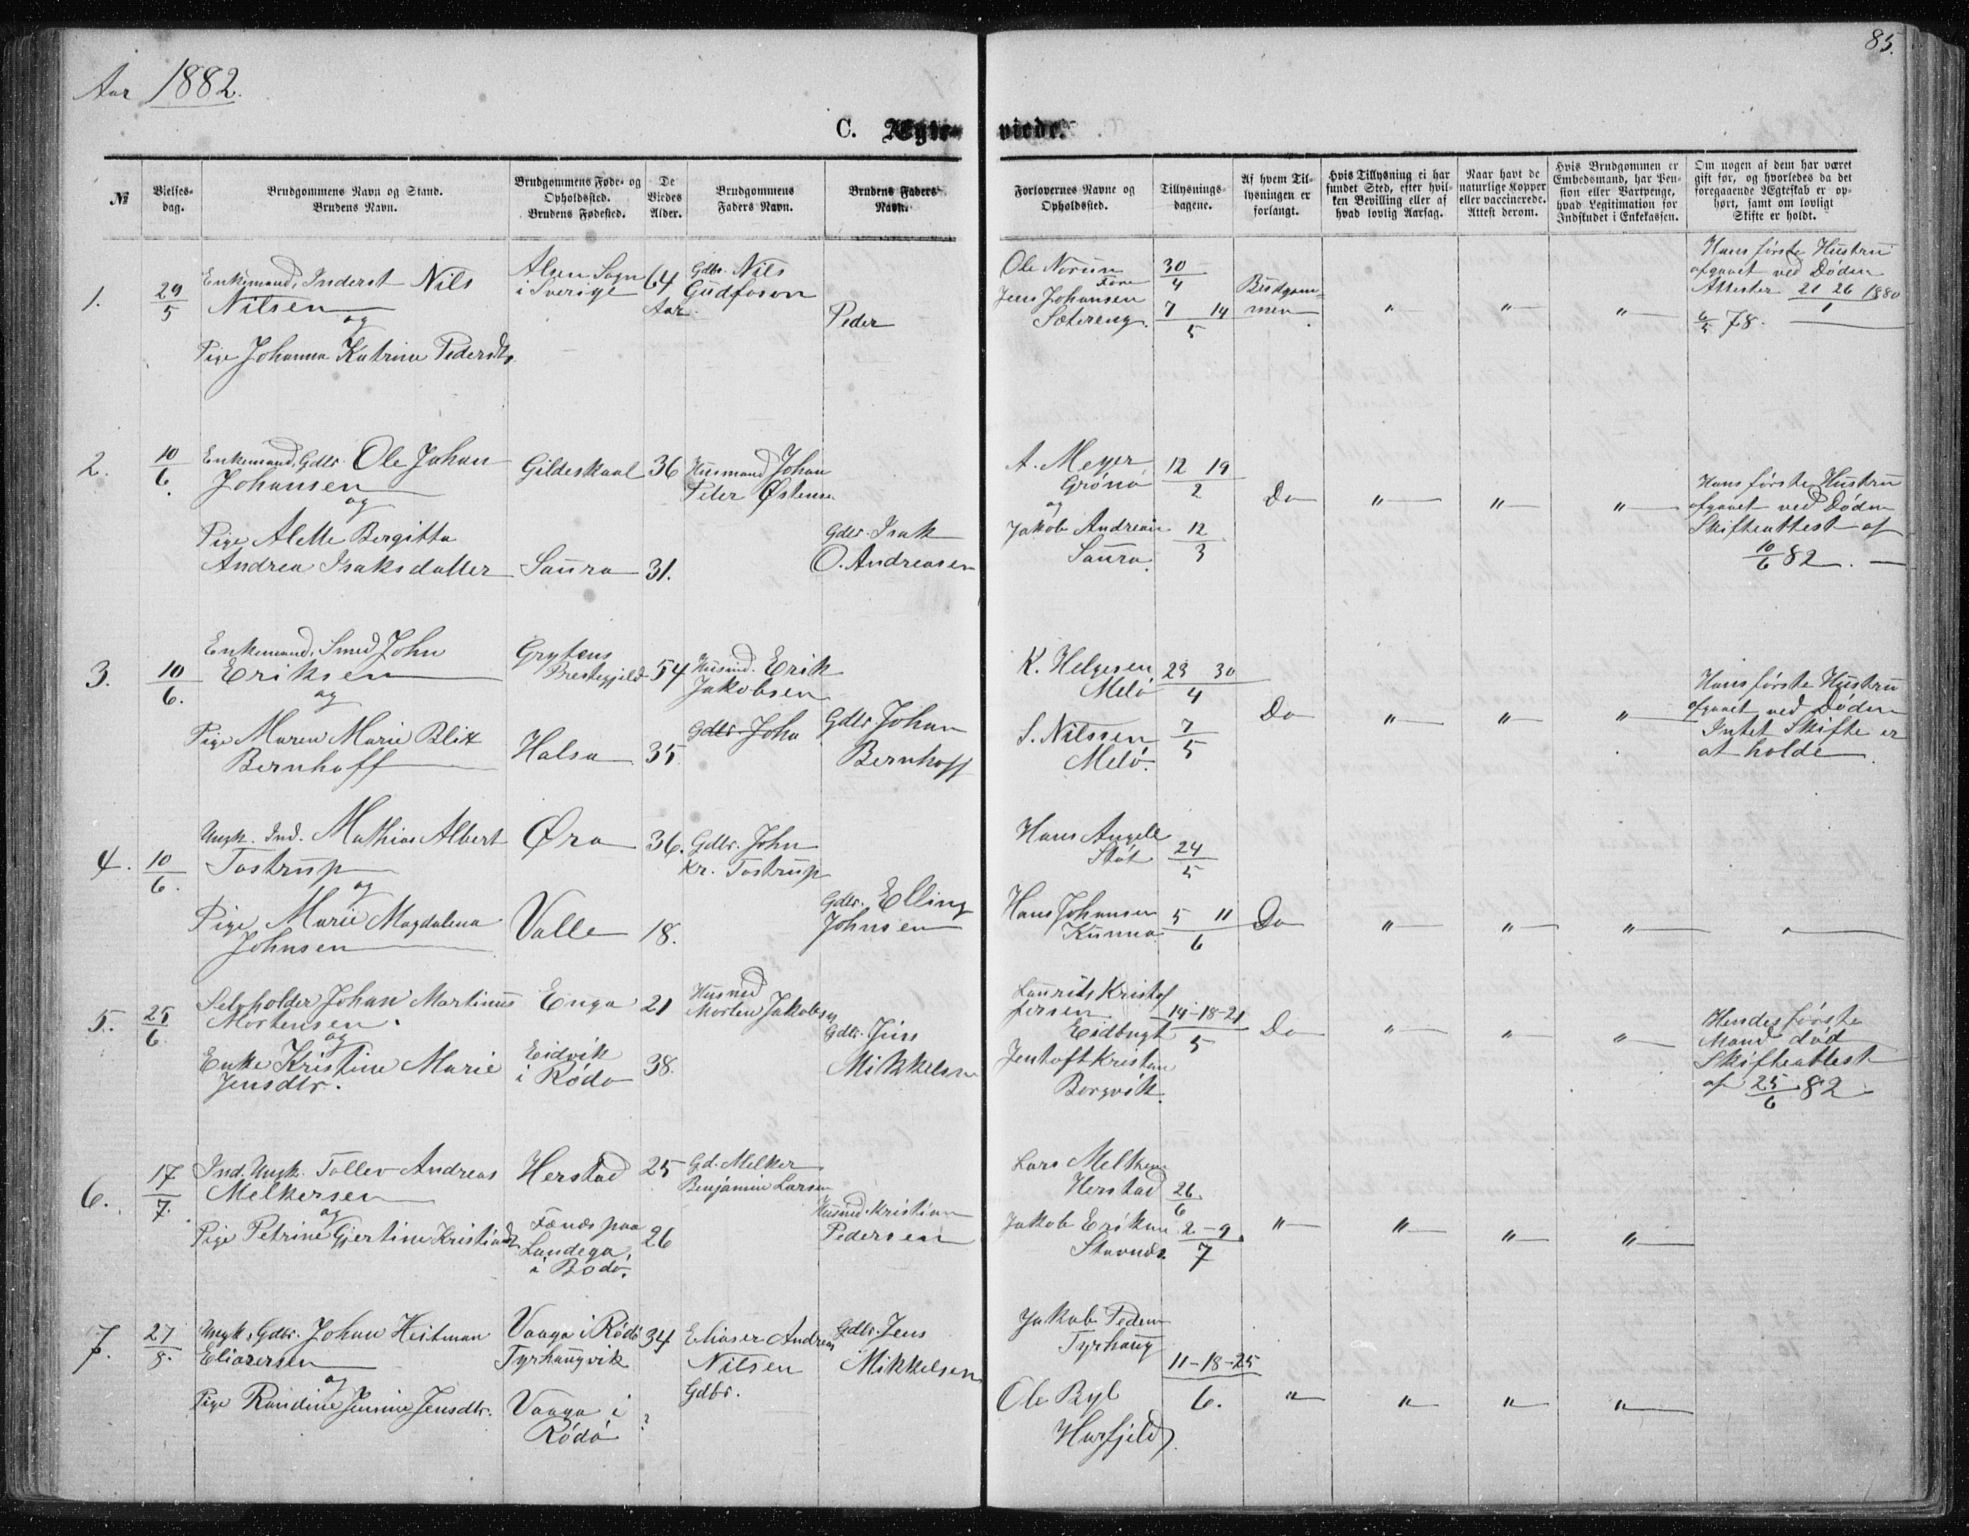 Aar 1882.
85.
C. Ægte- viede.
№
Vielses-
dag.
Brudgommens Navn og Stand.
Brudens Navn.
Brudgommens Føde- og
Opholdssted.
Brudens Fødested.
De
Viedes
Alder.
Brudgommens
Faders Navn.
Brudens Faders
Navn.
Forlovernes Navne og
Opholdssted.
Tillysnings-
dagene.
Af hvem Til-
lysningen er
forlangt.
Hvis Tillysning ei har
fundet Sted, efter hvil-
ken Bevilling eller af
hvad lovlig Aarsag.
Naar havt de
naturlige Kopper
eller vaccinerede.
Attest derom.
Hvis Brudgommen er
Embedsmand, har Pen-
sion eller Vartpenge,
hvad Legitimation for
Indskudet i Enkekassen.
Om nogen af dem har været
gift før, og hvorledes da det
foregaaende Ægteskab er op-
hørt, samt om lovligt
Skifte er holdt.
1.
29/5
Enkemand, Inderst Nils
Nilsen
og
Pige Johanna Katrine Pedersdtr.
Alsen Sogn
i Sverige
64
Aar.
Gdbr. Nils
Gudfason
Peder
Ole Norum
Fore
Jens Johansen
Sætereng.
30/4
7 14/5
Brudgom-
men
" " "
Hans første Hustru
afgaaet ved Døden
Attester 21 26/1 1880
6/5 78.
2.
10/6.
Enkemand, Gdbr. Ole Johan
Johansen
og
Pige Alette Bergitta
Andrea Isaksdatter
Gildeskaal
Saura
36
31.
Husmand Johan
Peter Østensen
Gdbr. Isak
O. Andreasen
A. Meyer
Grønø
og
Jakob Andreas
Saura.
12 19/2
12/3
Do
" " "
Hans første Hustru
afgaaet ved Døden
Skifteattest af
10/6 82.
3.
10/6.
Enkemand, Smed John
Eriksen
og
Pige Maren Marie Blix
Bernhoff
Grytens
Prestegjeld
Halsa
54
35
Husmd. Erik
Jakobsen
Gdbr. John
Gdbr. Johan
Bernhoff
K. Helgesen
Melø
S. Nilssen
Melø.
23 30/4
7/5
Do
" " "
Hans første Hustru
afgaaet ved Døden
Intet Skifte er
at holde
4.
10/6.
Ungk. Ind. Mathias Albert
Tostrup
og
Pige Marie Magdalena
Johnsen
Øra
Valle
36.
18.
Gdbr. John
Kr. Tostrup
Gdbr. Elling
Johnsen
Hans Angell
Støt
Hans Johansen
Kunna
24/5
5 11/6
Do
" " " "
5.
25/6.
Selvholder Johan Martinus
Mortensen.
og
Enke Kristine Marie
Jensdtr.
Enga
Eidvik
i Rødø
21
38.
Husmd
Morten Jakobsen
Gdbr. Jens
Mikkelsen
Laurits Kristof
fersen
Eidbugt
Jentoft Kristian
Borgvik.
14-18-21/5
Do
" " "
Hendes første
Mand død
Skifteattest
af 25/6 82
6.
17/7.
Ind. Ungk. Tollev Andreas
Melkersen
og
Pige Petrine Gjertine Kristiansdtr
Herstad
Fænes paa
Landego,
i Bodø.
25
26
Gd. Melker
Benjamin Larsen
Husmd. Kristian
Pedersen
Lars Melkersen
Herstad
Jakob Eriksen
Stavnes
26/6
2-9/7
" " " "
7.
27/8.
Ungk., Gdbr. Johan Heitman
Eliasersen
og
Pige Randine Jensine Jensdtr.
Vaaga i Rødø
Tyrhaugvik
Vaaga i
Rødø
34
?
Eliaser Andreas
Nilsen
Gdbr.
Gdbr. Jens
Mikkelsen
Jakob Pedersen
Tyrhaug
Ole Ryl
Husfjeld
11-18-25/6.
" " " "